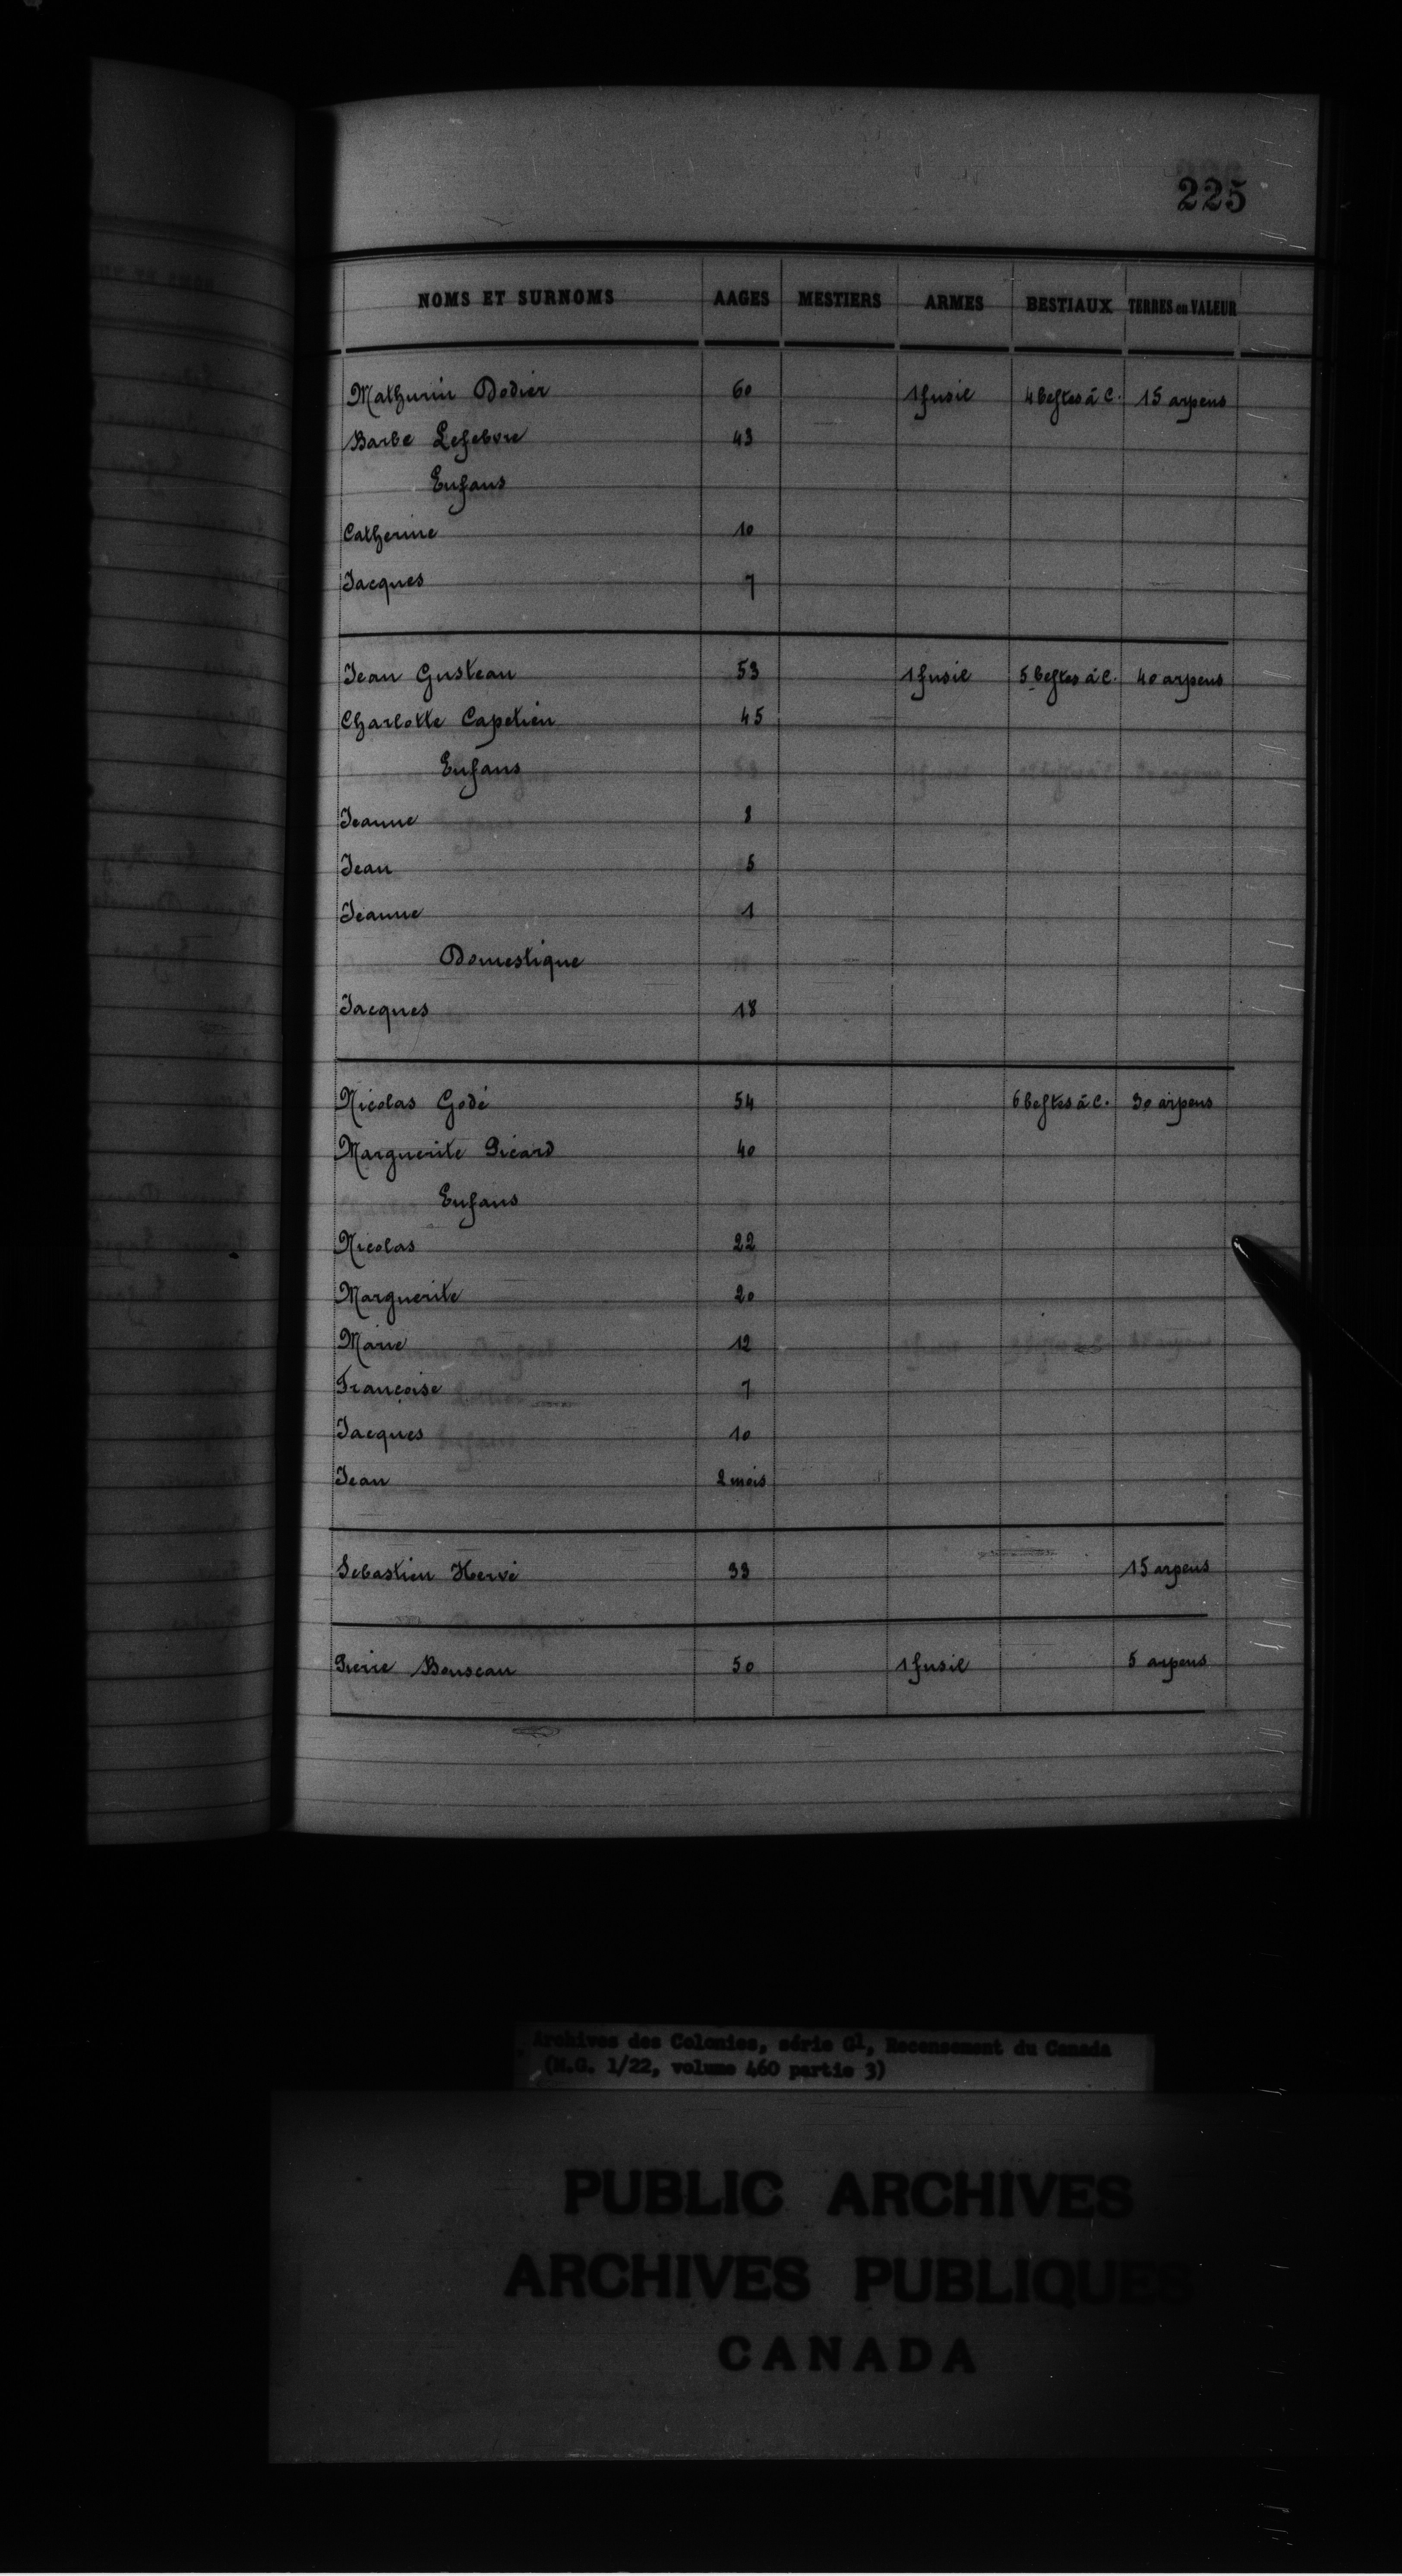 225
NOMS ET SURNOMS AAGES MESTIERS ARMES BESTIAUX TERRES en VALEUR
Mathurin Dodier 60 1 fusil 4 bestes à c. 15 arpens
Barbe Lefebvre 43
Enfans
Catherine 10
Jacques 7
Jean Gusteau 53 1 fusil 5 bestes à c. 40 arpens
Charlotte Capetien 45
Enfans
Jeanne 8
Jean 5
Jeanne 1
Domestique
Jacques 18
Nicolas Godé 54 6 bestes à c. 30 arpens
Marguerite Picard 40
Enfans
Nicolas 22
Marguerite 20
Marie 12
Françoise 7
Jacques 10
Jean 2 mois
Sebastien Hervé 33 15 arpens
Pierre 50 1 fusil 5 arpens
Archives des Colonies, série G1, Recensement du Canada
(M.G. 1/22, volume 460 partie 3)
PUBLIC ARCHIVES
ARCHIVES PUBLIQUES
CANADA